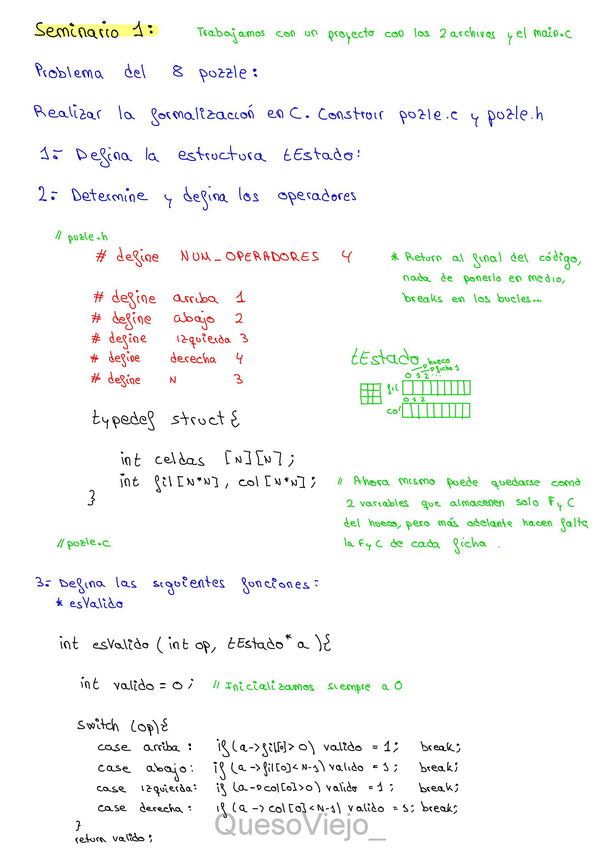 Seminario 1: Trabajamos con un proyecto con los 2 archivos y el main.c
Problema del 8 puzzle:
Realizar la formalización en C. Construir puzle.c y puzle.h
1.- Defina la estructura tEstado:
2.- Determine y defina los operadores
// puzle.h
# define NUM_OPERADORES 4
# define arriba 1
# define abajo 2
# define izquierda 3
# define derecha 4
# define N 3
* Return al final del código,
nada de ponerlo en medio,
breaks en los bucles...
tEstado
hueco
ficha 1
0 1 2 ...
fil
0 1 2
col
typedef struct {
int celdas [N][N];
int fil[N*N], col[N*N];
}
// Ahora mismo puede quedarse como
2 variables que almacenen solo F y C
del hueco, pero más adelante hacen falta
la F y C de cada ficha.
// puzle.c
3.- Defina las siguientes funciones:
* esValido
int esValido (int op, tEstado* a){
int valido = 0; // Inicializamos siempre a 0
switch (op){
case arriba: if(a->fil[0]>0) valido = 1; break;
case abajo: if (a->fil[0]<N-1) valido = 1; break;
case izquierda: if (a->col[0]>0) valido = 1; break;
case derecha: if (a->col[0]<N-1) valido = 1; break;
}
return valido;
QuesoViejo_